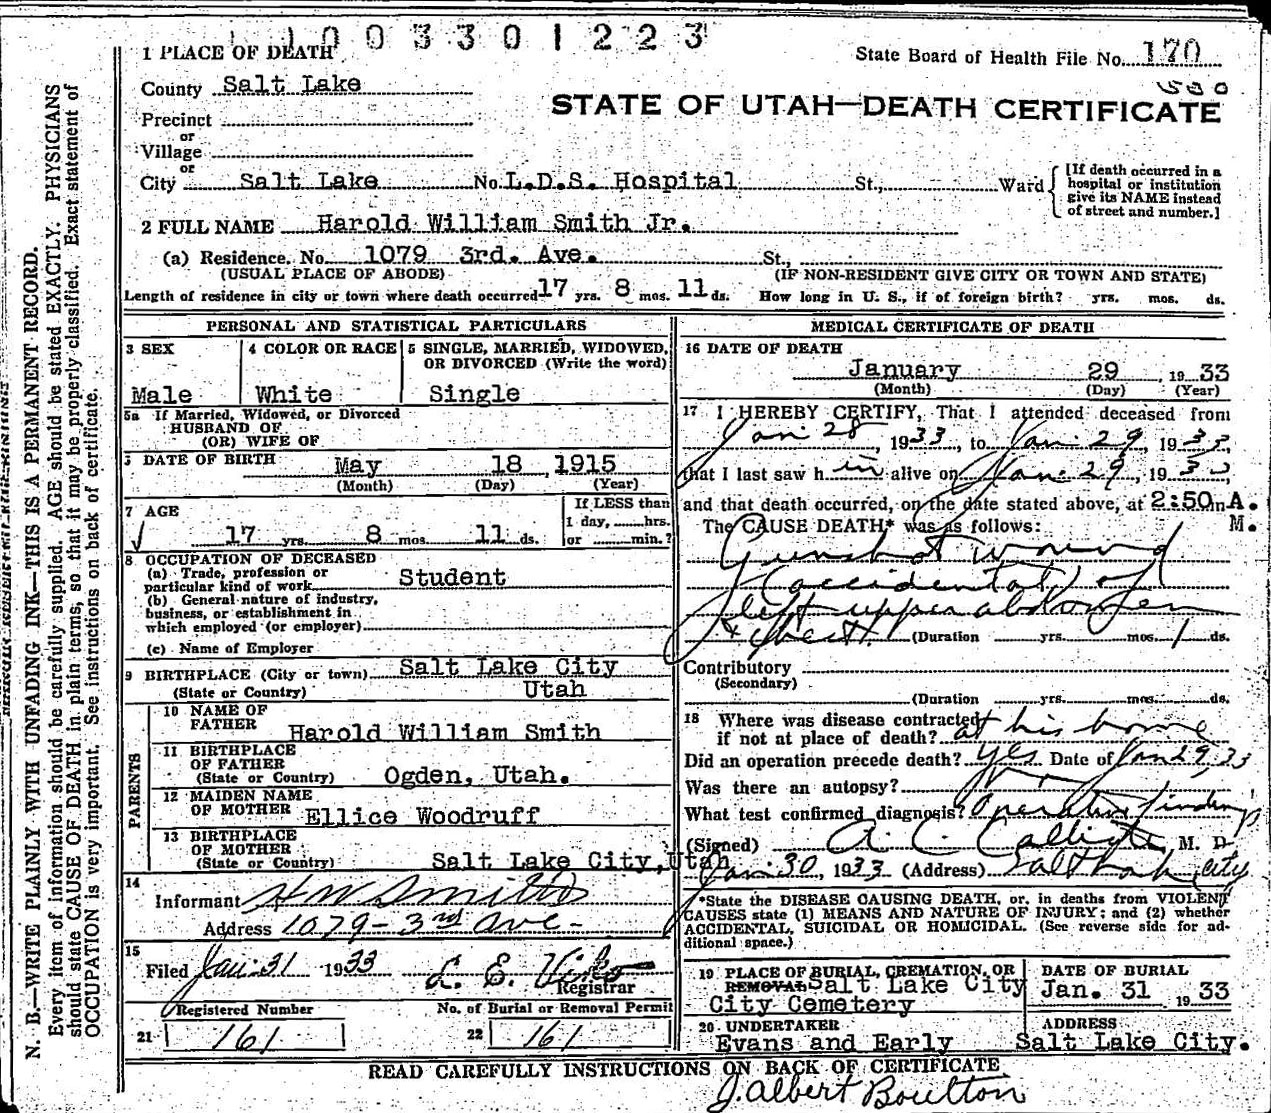 1003301223
1 PLACE OF DEATH
State Board of Health File No. 170
530
County Salt Lake
STATE OF UTAH—DEATH CERTIFICATE
Precinct
or
Village
or
City Salt Lake No. L.D.S. Hospital St., Ward
[If death occurred in a
hospital or institution
give its NAME instead
of street and number.]
2 FULL NAME Harold William Smith Jr.
(a) Residence. No. 1079 3rd. Ave. St.,
(USUAL PLACE OF ABODE) (IF NON-RESIDENT GIVE CITY OR TOWN AND STATE)
Length of residence in city or town where death occurred 17 yrs. 8 mos. 11 ds. How long in U. S., if of foreign birth? yrs. mos. ds.
PERSONAL AND STATISTICAL PARTICULARS
3 SEX
Male
4 COLOR OR RACE
White
5 SINGLE, MARRIED, WIDOWED,
OR DIVORCED (Write the word)
Single
5a If Married, Widowed, or Divorced
HUSBAND OF
(OR) WIFE OF
DATE OF BIRTH May 18, 1915
(Month) (Day) (Year)
7 AGE
17 yrs. 8 mos. 11 ds.
If LESS than
1 day, hrs.
or min.?
8 OCCUPATION OF DECEASED
(a) Trade, profession or
particular kind of work Student
(b) General nature of industry,
business, or establishment in
which employed (or employer)
(c) Name of Employer
9 BIRTHPLACE (City or town) Salt Lake City
(State or Country) Utah
PARENTS
10 NAME OF
FATHER Harold William Smith
11 BIRTHPLACE
OF FATHER
(State or Country) Ogden, Utah.
12 MAIDEN NAME
OF MOTHER Ellice Woodruff
13 BIRTHPLACE
OF MOTHER
(State or Country) Salt Lake City, Utah
14
Informant H W Smith
Address 1079 - 3rd Ave -
15
Filed Jan. 31 1933
Registrar
Registered Number No. of Burial or Removal Permit
21 161 22 161
MEDICAL CERTIFICATE OF DEATH
16 DATE OF DEATH
January 29, 1933
(Month) (Day) (Year)
17 I HEREBY CERTIFY, That I attended deceased from
Jan. 28, 1933, to Jan. 29, 1933,
that I last saw h im alive on Jan. 29, 1933,
and that death occurred, on the date stated above, at 2:50 m A.
M.
The CAUSE DEATH* was as follows:
Gunshot wound
(accidental) of
left upper abdomen
& chest. (Duration yrs. mos. 1 ds.
Contributory
(Secondary)
(Duration yrs. mos. ds.
18 Where was disease contracted
if not at place of death? at his home
Did an operation precede death? yes Date of Jan 29, 33
Was there an autopsy?
What test confirmed diagnosis? Operative findings
(Signed) A. C. Callister, M. D.
Jan. 30, 1933 (Address) Salt Lake City
*State the DISEASE CAUSING DEATH, or, in deaths from VIOLENT
CAUSES state (1) MEANS AND NATURE OF INJURY; and (2) whether
ACCIDENTAL, SUICIDAL OR HOMICIDAL. (See reverse side for ad-
ditional space.)
19 PLACE OF BURIAL, CREMATION, OR
REMOVAL Salt Lake City
City Cemetery
DATE OF BURIAL
Jan. 31 1933
20 UNDERTAKER
Evans and Early
ADDRESS
Salt Lake City.
READ CAREFULLY INSTRUCTIONS ON BACK OF CERTIFICATE
J. Albert Boulton
N. B.—WRITE PLAINLY WITH UNFADING INK—THIS IS A PERMANENT RECORD.
Every item of information should be carefully supplied. AGE should be stated EXACTLY. PHYSICIANS
should state CAUSE OF DEATH in plain terms, so that it may be properly classified. Exact statement of
OCCUPATION is very important. See instructions on back of certificate.